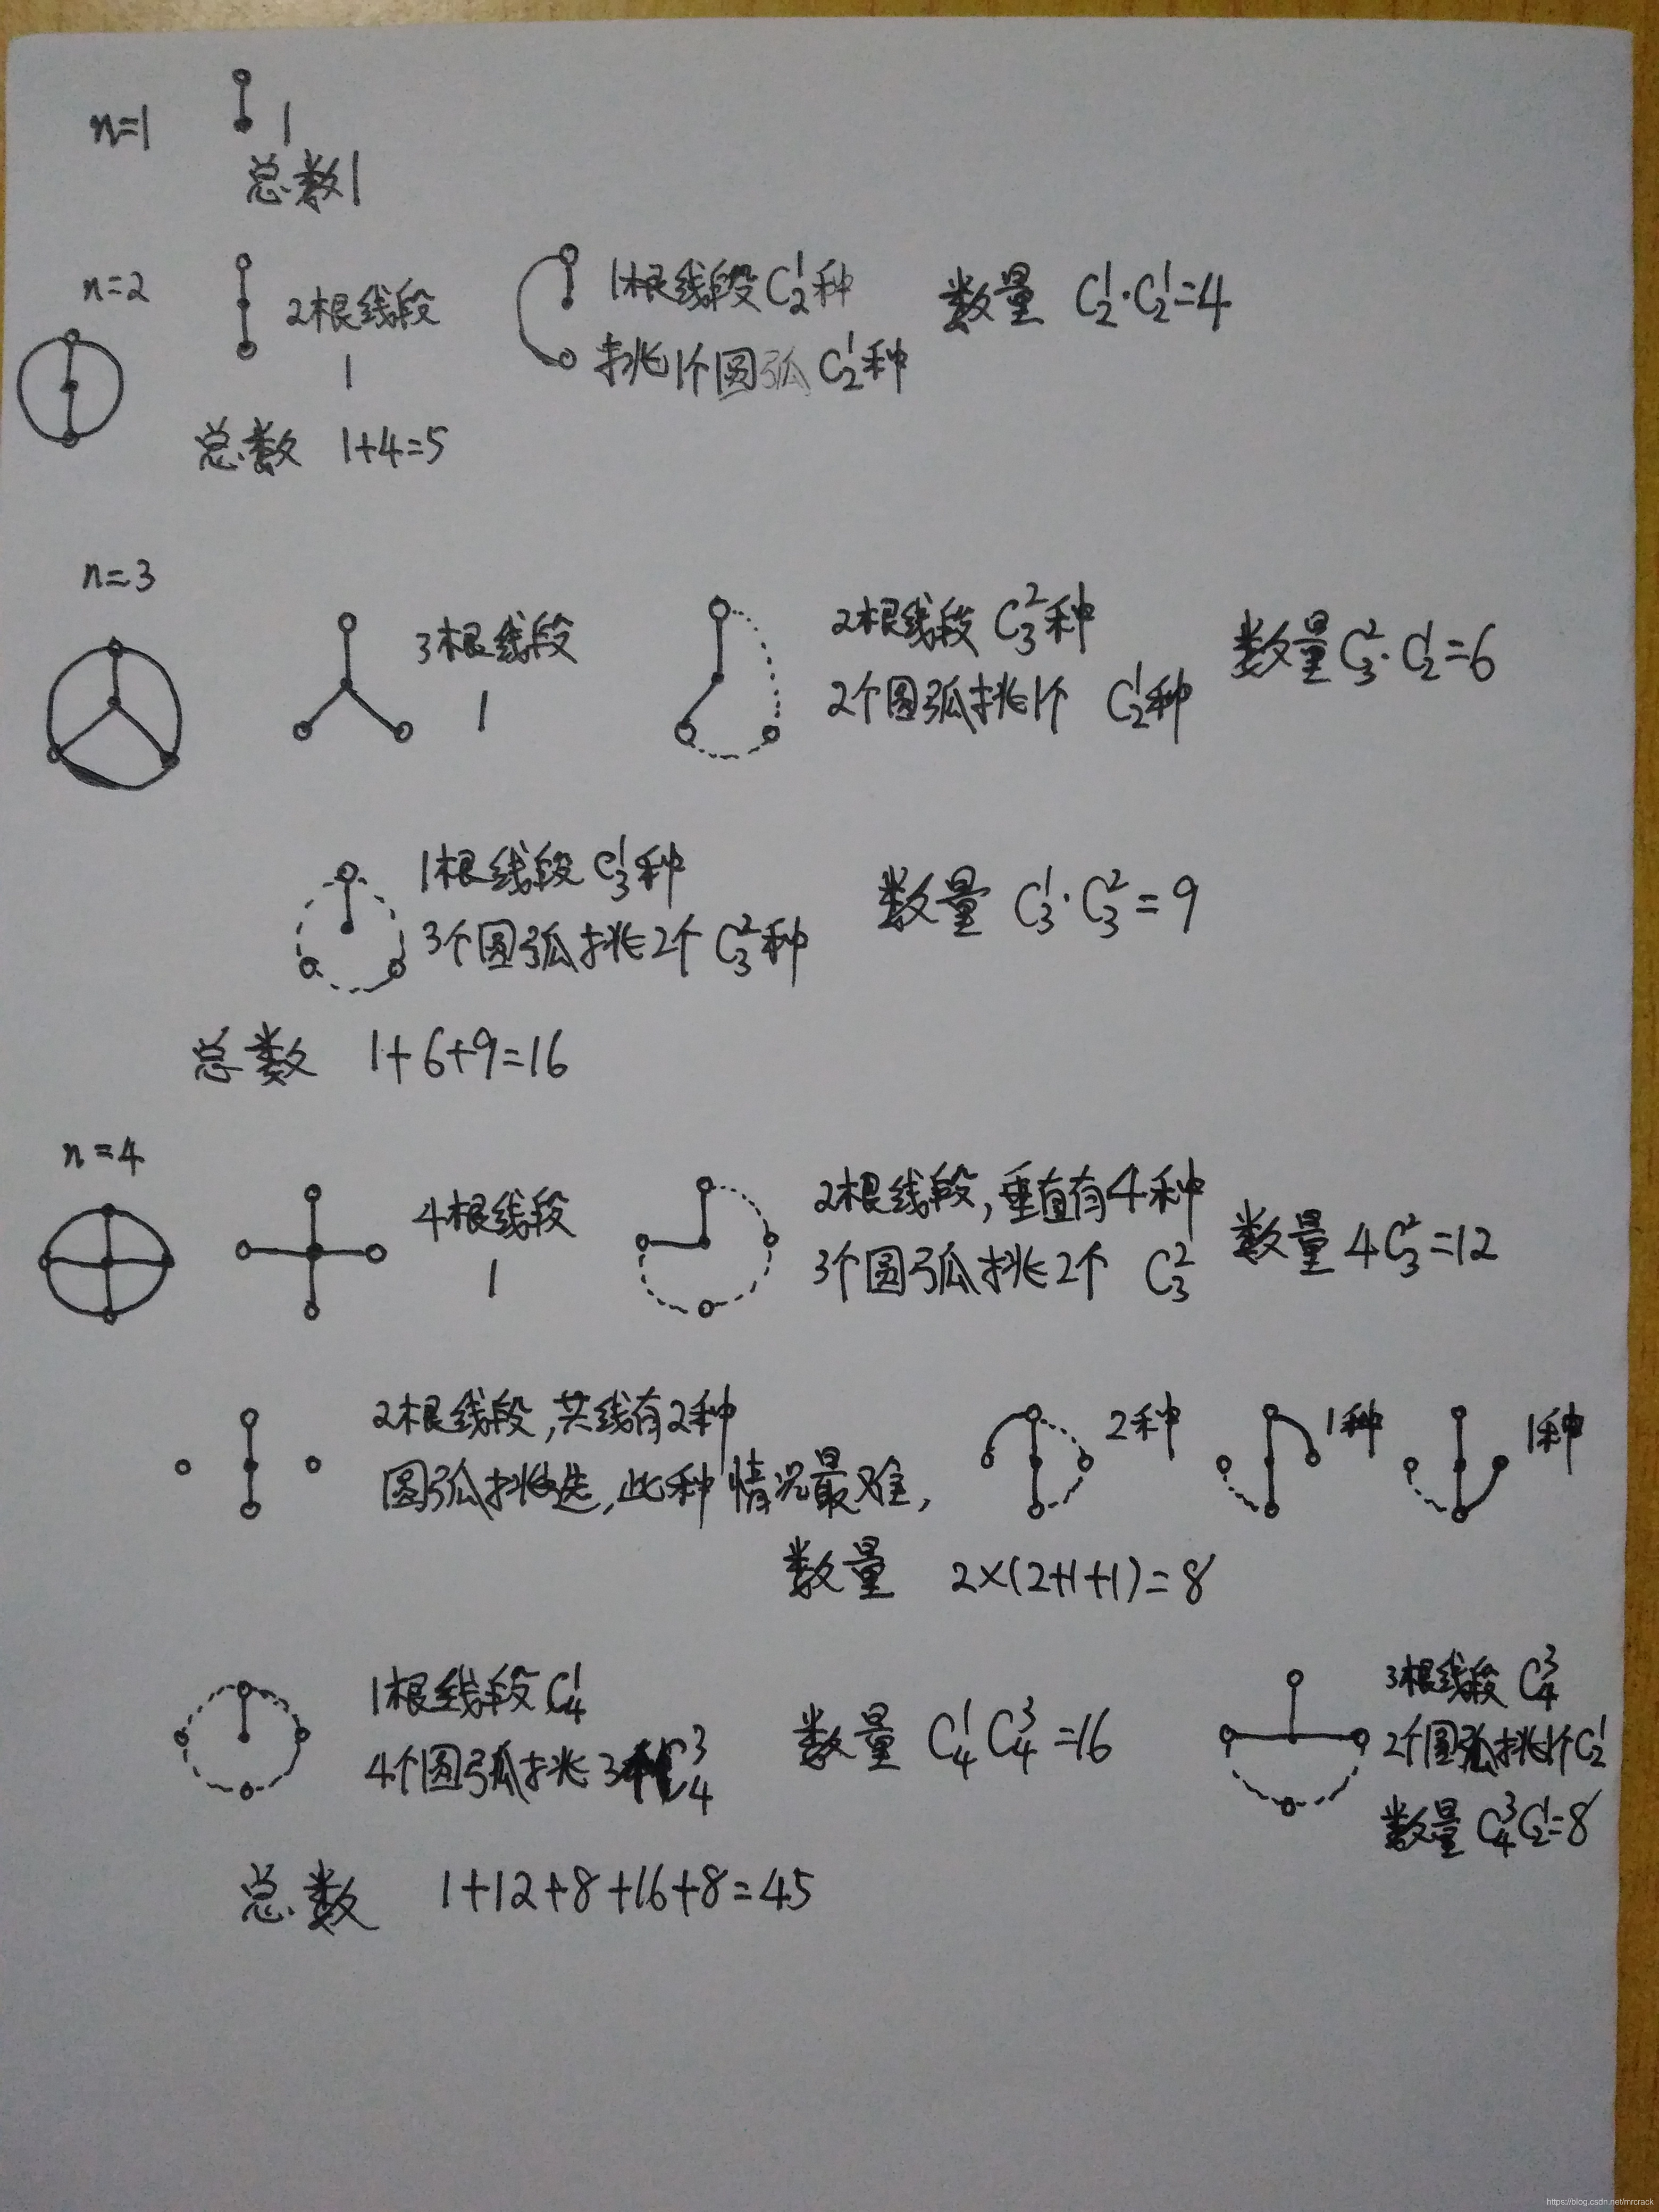 n=1
1
总数1
n=2
2根线段
1
1根线段 C₂¹种
挑1个圆弧 C₂¹种
数量 C₂¹·C₂¹=4
总数 1+4=5
n=3
3根线段
1
2根线段 C₃²种
2个圆弧挑1个 C₂¹种
数量 C₃²·C₂¹=6
1根线段 C₃¹种
3个圆弧挑2个 C₃²种
数量 C₃¹·C₃²=9
总数 1+6+9=16
n=4
4根线段
1
2根线段,垂直有4种
3个圆弧挑2个 C₃²
数量 4C₃²=12
2根线段,共线有2种
圆弧挑选,此种情况最难,
2种
1种
1种
数量 2×(2+1+1)=8
1根线段 C₄¹
4个圆弧挑3 C₄³
数量 C₄¹C₄³=16
3根线段 C₄³
2个圆弧挑1个C₂¹
数量 C₄³C₂¹=8
总数 1+12+8+16+8=45
https://blog.csdn.net/mrcrack